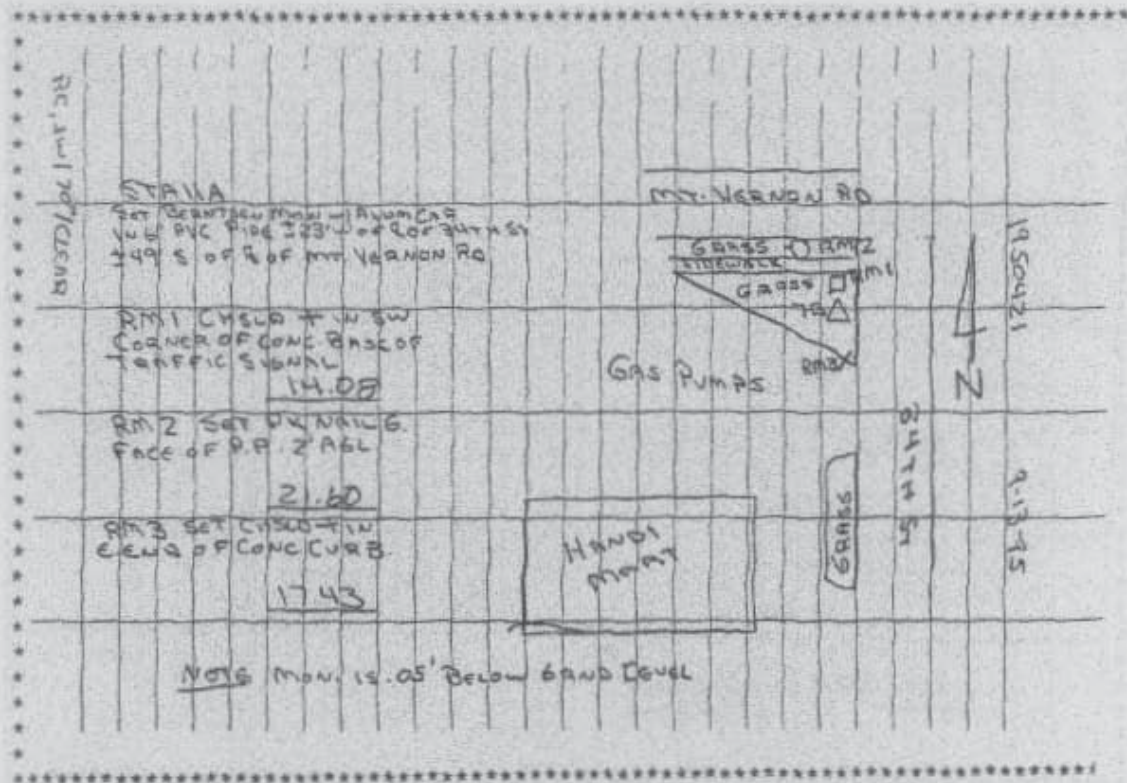 RC, SW / 70°/CLEAR
STA 11A
SET BERNTSEN MON W/ALUM CAP
IN 6" PVC PIPE ±23' W OF ℄ OF 34TH ST
±49 S OF ℄ OF MT. VERNON RD
RM1 CHSLD + IN SW
CORNER OF CONC BASE OF
TRAFFIC SIGNAL
14.08
RM2 SET PK NAIL
FACE OF P.P. 2' AGL
21.60
RM3 SET CHSLD + IN
E END OF CONC CURB
17.43
NOTE MON. IS .05' BELOW GRND LEVEL
MT. VERNON RD
GRASS RM2
SIDEWALK
GRASS RM1
GAS PUMPS RM3
34TH ST
GRASS
HANDI
MART
N
19.50421
9-13-95